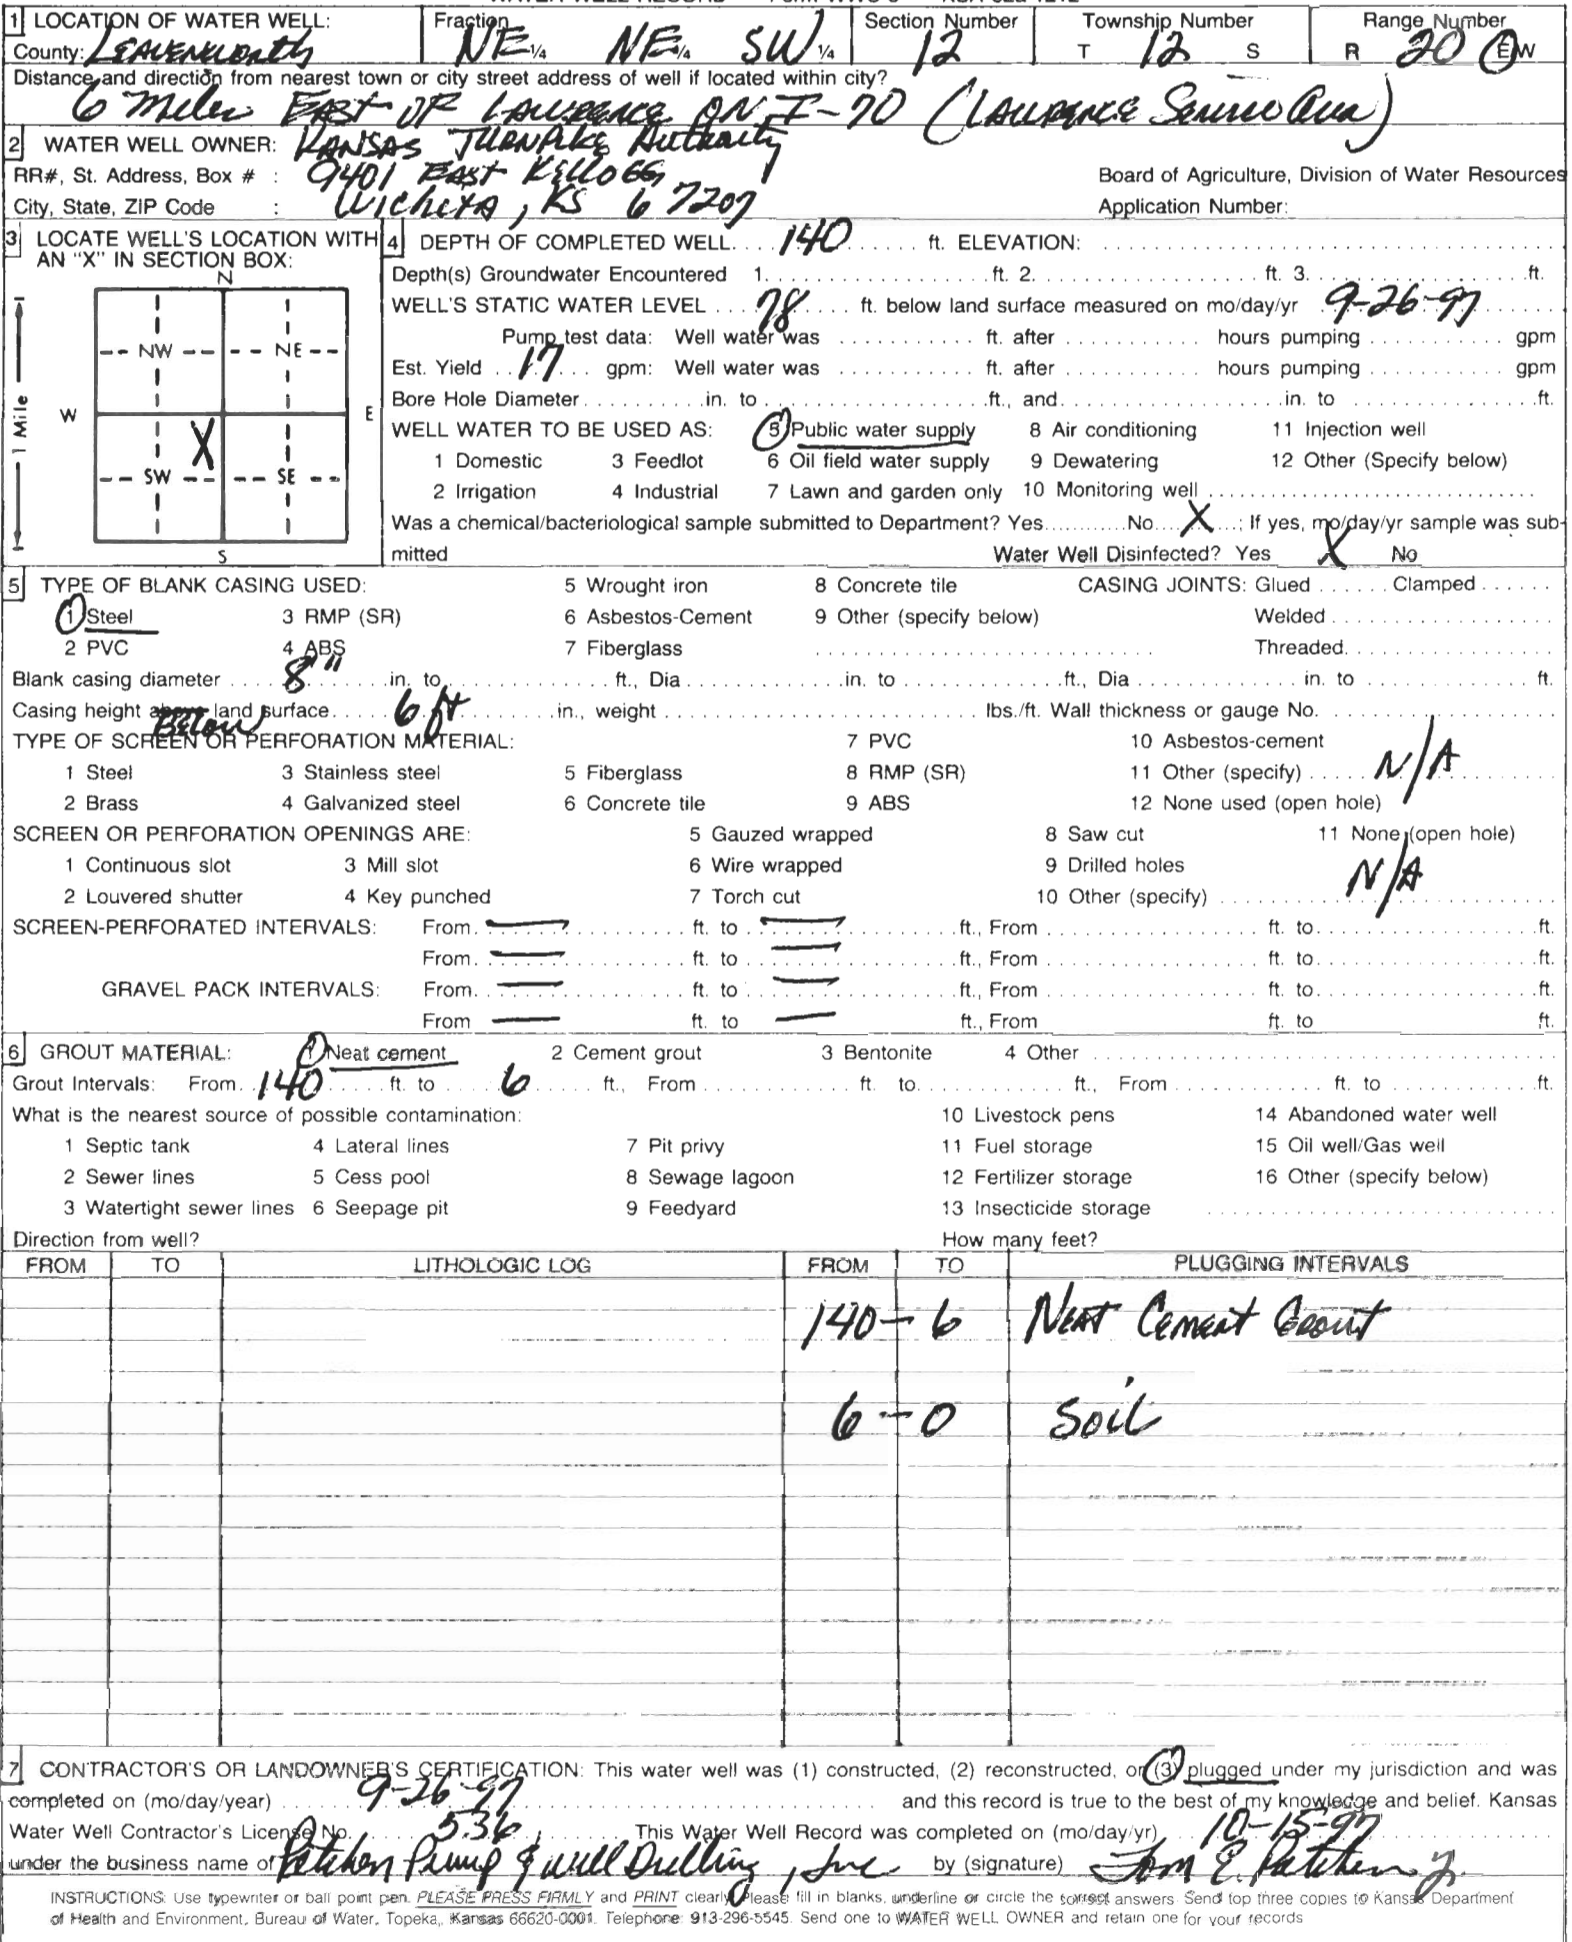 1 LOCATION OF WATER WELL: Fraction Section Number Township Number Range Number
County: Leavenworth NE ¼ NE ¼ SW ¼ 12 T 12 S R 20 E W
Distance and direction from nearest town or city street address of well if located within city?
6 Miles EAST OF LAWRENCE ON I-70 (LAWRENCE Service Area)
2 WATER WELL OWNER: KANSAS TURNPIKE Authority
RR#, St. Address, Box # : 9401 EAST Kellogg Board of Agriculture, Division of Water Resources
City, State, ZIP Code : Wichita, KS 67207 Application Number:
3 LOCATE WELL'S LOCATION WITH AN "X" IN SECTION BOX:
N
NW NE
W E
1 Mile
X
SW SE
S
4 DEPTH OF COMPLETED WELL 140 ft. ELEVATION:
Depth(s) Groundwater Encountered 1. ft. 2. ft. 3. ft.
WELL'S STATIC WATER LEVEL 78 ft. below land surface measured on mo/day/yr 9-26-97
Pump test data: Well water was ft. after hours pumping gpm
Est. Yield 17 gpm: Well water was ft. after hours pumping gpm
Bore Hole Diameter in. to ft., and in. to ft.
WELL WATER TO BE USED AS: 5 Public water supply 8 Air conditioning 11 Injection well
1 Domestic 3 Feedlot 6 Oil field water supply 9 Dewatering 12 Other (Specify below)
2 Irrigation 4 Industrial 7 Lawn and garden only 10 Monitoring well
Was a chemical/bacteriological sample submitted to Department? Yes No X ; If yes, mo/day/yr sample was sub-
mitted Water Well Disinfected? Yes X No
5 TYPE OF BLANK CASING USED: 5 Wrought iron 8 Concrete tile CASING JOINTS: Glued Clamped
1 Steel 3 RMP (SR) 6 Asbestos-Cement 9 Other (specify below) Welded
2 PVC 4 ABS 7 Fiberglass Threaded
Blank casing diameter 8" in. to ft., Dia in. to ft., Dia in. to ft.
Casing height above Below land surface 6 ft in., weight lbs./ft. Wall thickness or gauge No.
TYPE OF SCREEN OR PERFORATION MATERIAL: 7 PVC 10 Asbestos-cement
1 Steel 3 Stainless steel 5 Fiberglass 8 RMP (SR) 11 Other (specify) N/A
2 Brass 4 Galvanized steel 6 Concrete tile 9 ABS 12 None used (open hole)
SCREEN OR PERFORATION OPENINGS ARE: 5 Gauzed wrapped 8 Saw cut 11 None (open hole)
1 Continuous slot 3 Mill slot 6 Wire wrapped 9 Drilled holes
2 Louvered shutter 4 Key punched 7 Torch cut 10 Other (specify) N/A
SCREEN-PERFORATED INTERVALS: From — ft. to — ft., From ft. to ft.
From — ft. to — ft., From ft. to ft.
GRAVEL PACK INTERVALS: From — ft. to — ft., From ft. to ft.
From — ft. to — ft., From ft. to ft.
6 GROUT MATERIAL: 1 Neat cement 2 Cement grout 3 Bentonite 4 Other
Grout Intervals: From 140 ft. to 6 ft., From ft. to ft., From ft. to ft.
What is the nearest source of possible contamination: 10 Livestock pens 14 Abandoned water well
1 Septic tank 4 Lateral lines 7 Pit privy 11 Fuel storage 15 Oil well/Gas well
2 Sewer lines 5 Cess pool 8 Sewage lagoon 12 Fertilizer storage 16 Other (specify below)
3 Watertight sewer lines 6 Seepage pit 9 Feedyard 13 Insecticide storage
Direction from well? How many feet?
FROM TO LITHOLOGIC LOG FROM TO PLUGGING INTERVALS
140 – 6 NEAT CEMENT GROUT
6 – 0 Soil
7 CONTRACTOR'S OR LANDOWNER'S CERTIFICATION: This water well was (1) constructed, (2) reconstructed, or (3) plugged under my jurisdiction and was
completed on (mo/day/year) 9-26-97 and this record is true to the best of my knowledge and belief. Kansas
Water Well Contractor's License No. 536 This Water Well Record was completed on (mo/day/yr) 10-15-97
under the business name of Patchen Pump & Well Drilling, Inc by (signature) Tom E. Patchen Jr.
INSTRUCTIONS: Use typewriter or ball point pen. PLEASE PRESS FIRMLY and PRINT clearly. Please fill in blanks, underline or circle the correct answers. Send top three copies to Kansas Department
of Health and Environment, Bureau of Water, Topeka, Kansas 66620-0001. Telephone: 913-296-5545. Send one to WATER WELL OWNER and retain one for your records